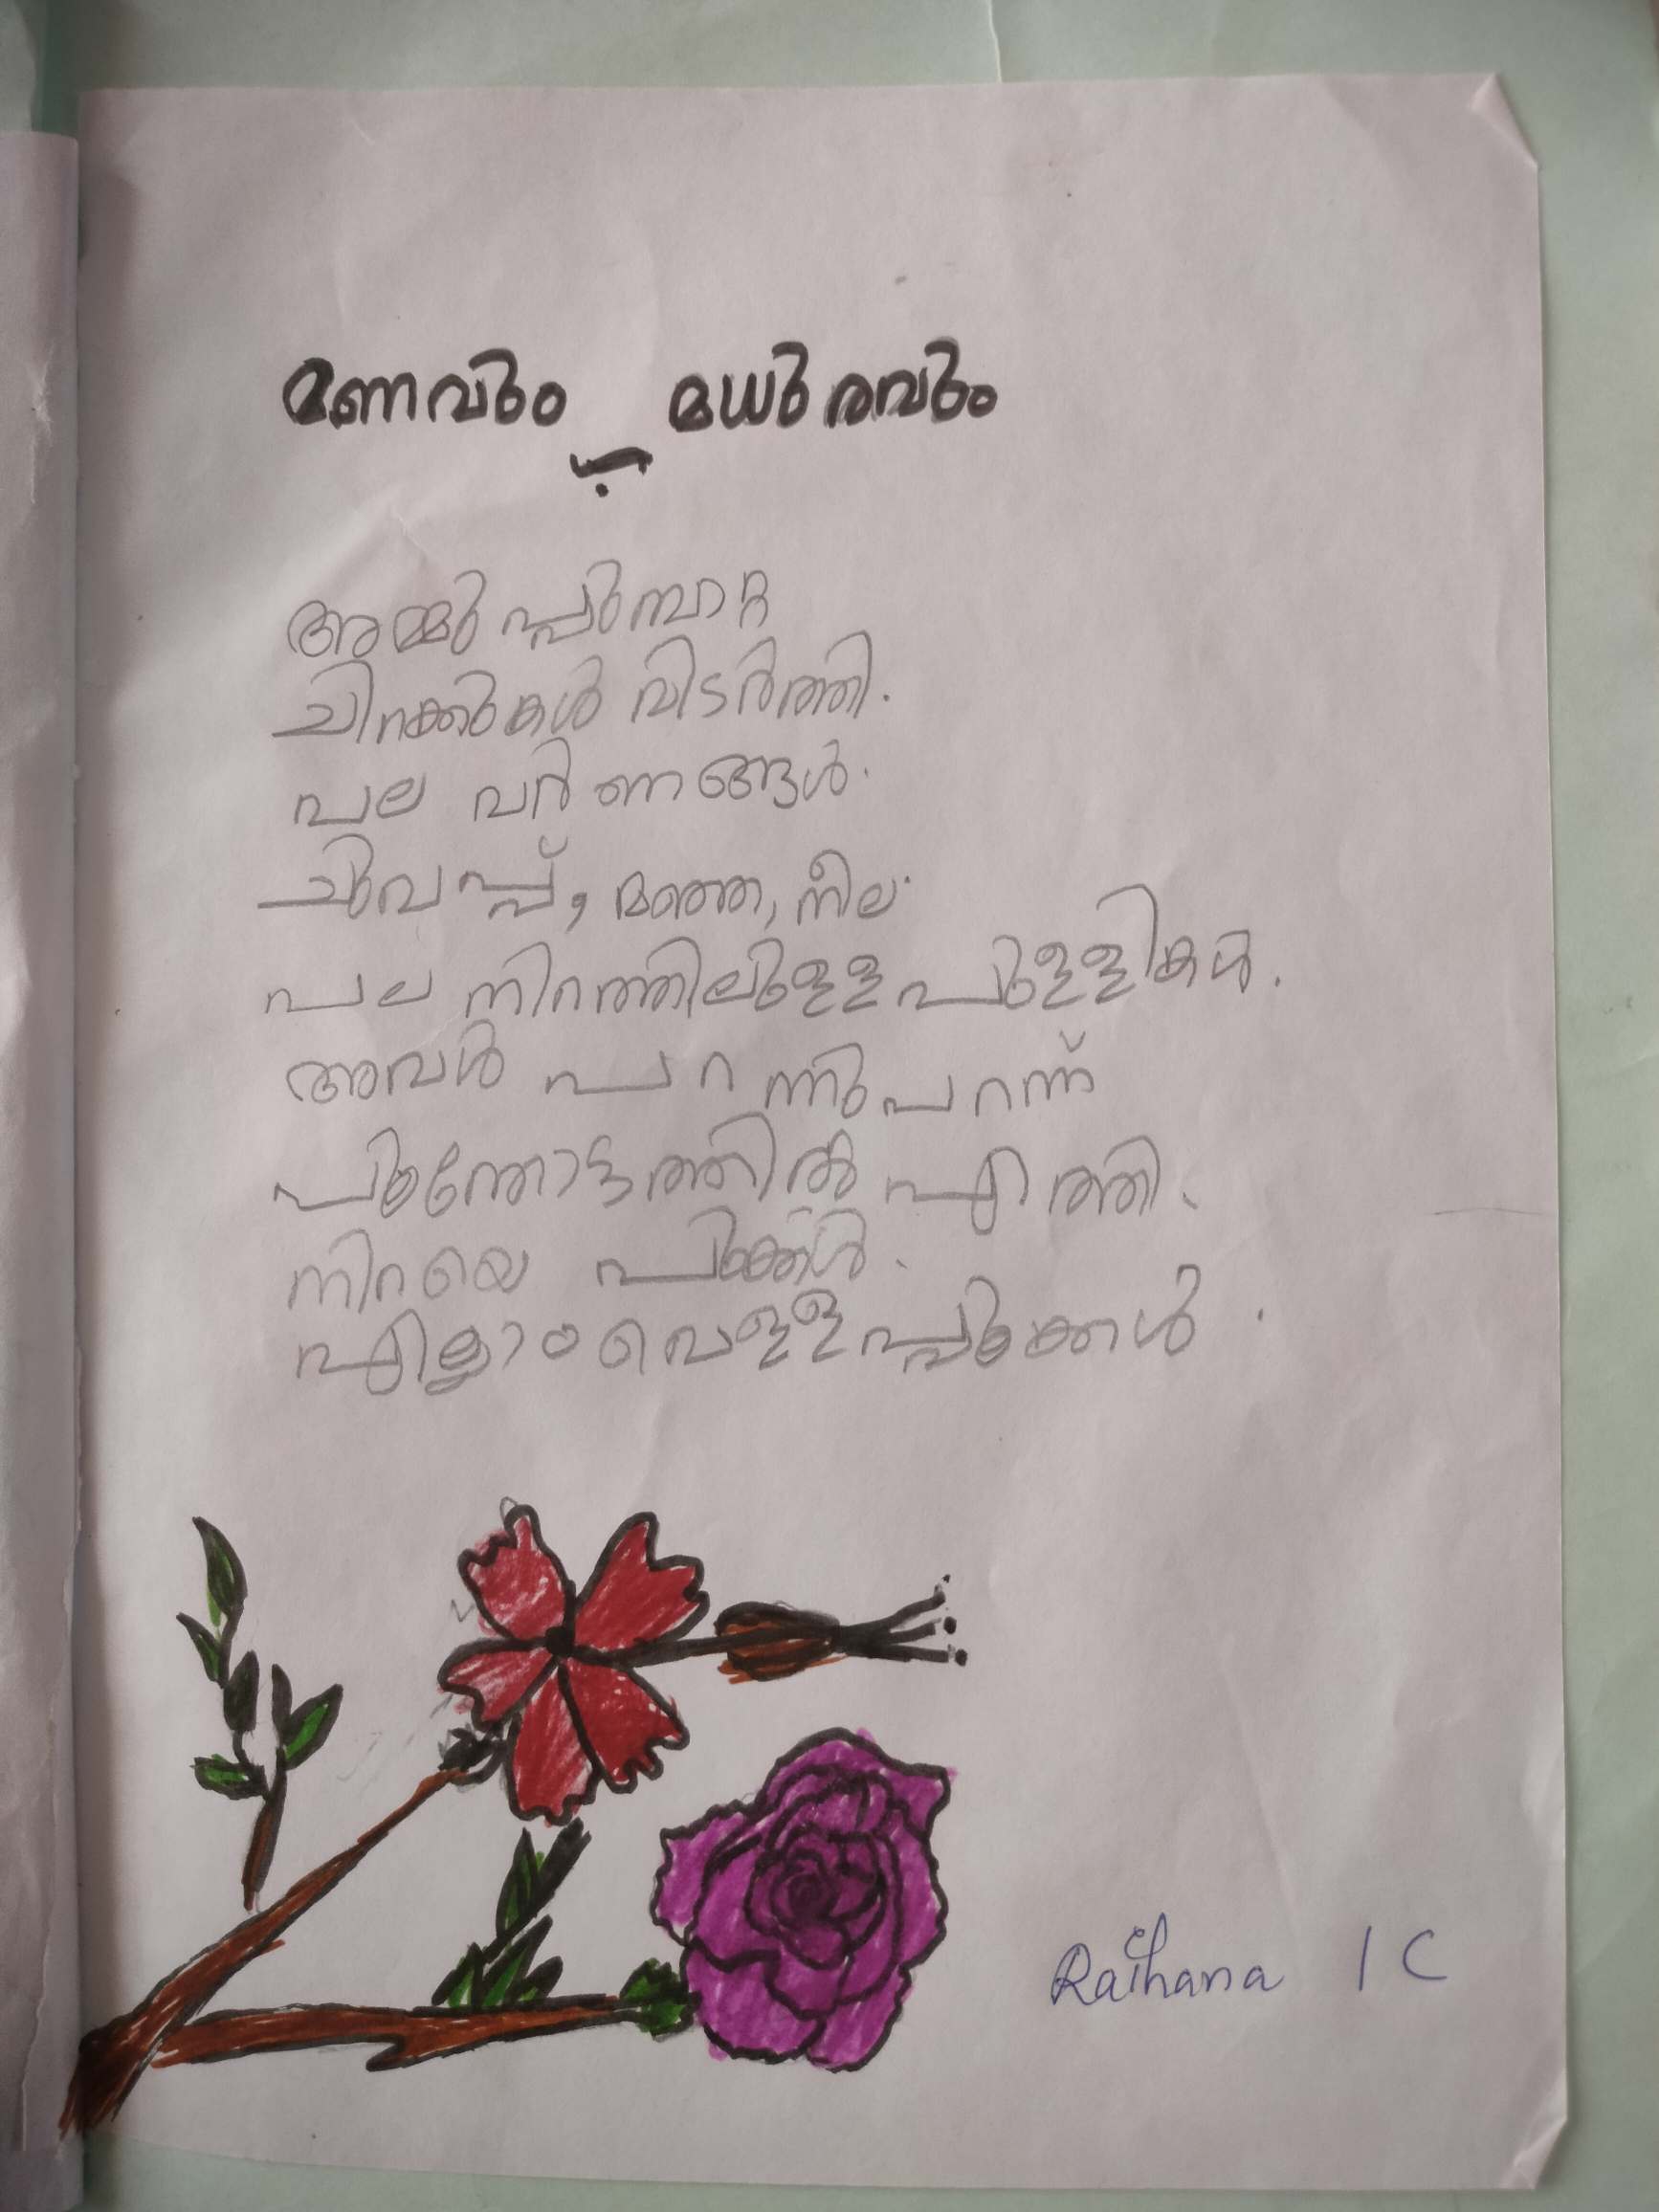 മണവും മധുരവും
അമ്മു പ്പൂമ്പാറ്റ
ചിറക്കുകൾ വിടർത്തി.
പല വർണങ്ങൾ.
ചുവപ്പ്, മഞ്ഞ, നീല.
പല നിറത്തിലുള്ള പുള്ളികൾ.
അവൾ പറന്നുപറന്ന്
പൂന്തോട്ടത്തിൽ എത്തി.
നിറയെ പൂക്കൾ.
എല്ലാം വെള്ളപ്പൂക്കൾ.
Raihana 1 C